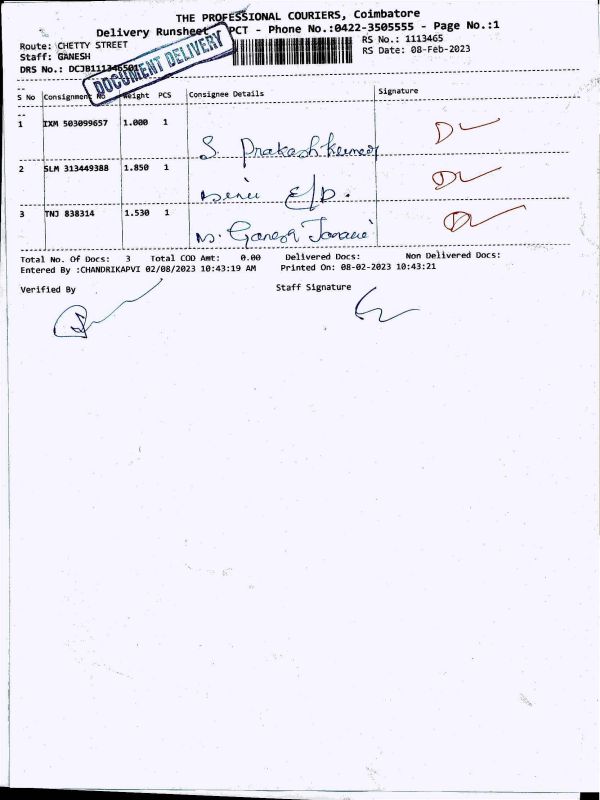 THE PROFESSIONAL COURIERS, Coimbatore
Delivery Runsheet PCT - Phone No.:0422-3505555 - Page No.:1
Route: CHETTY STREET
RS No.: 1113465
Staff: GANESH
RS Date: 08-Feb-2023
DRS No.:
DOCUMENT DELIVERY
S No Consignment No Weight PCS Consignee Details Signature
1 IXM 503099657 1.000 1
S. Prakash kumar
2 SLM 313449388 1.850 1
E/D.
3 TNJ 838314 1.530 1
M. Ganesh
Total No. Of Docs: 3 Total COD Amt: 0.00 Delivered Docs: Non Delivered Docs:
Entered By :CHANDRIKAPVI 02/08/2023 10:43:19 AM Printed On: 08-02-2023 10:43:21
Verified By Staff Signature